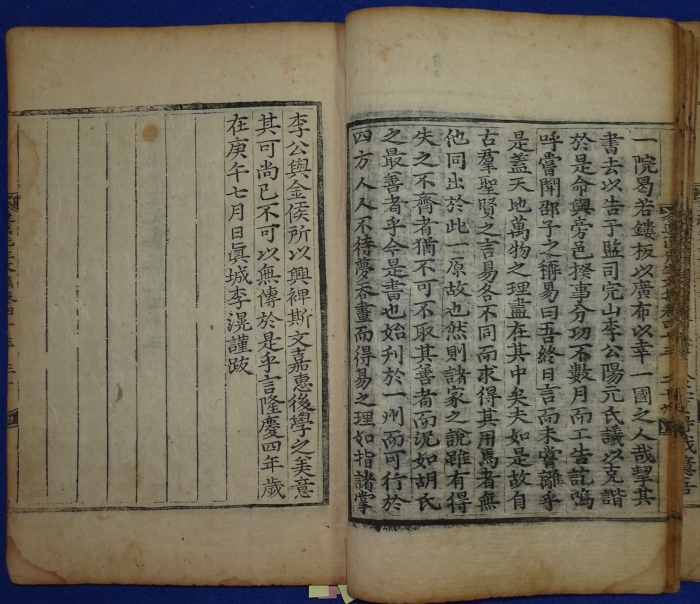 一院曷若鏤板以廣布以幸一國之人哉挈其
書去以告于監司完山李公陽元氏議以克諧
於是命與旁邑揆事分功不數月而工告訖嗚
呼嘗聞邵子之稱易曰吾終日言而未嘗離乎
是蓋天地萬物之理盡在其中矣夫如是故自
古羣聖賢之言易各不同而求得其用焉者無
他同出於此一原故也然則諸家之說雖有得
失之不齊者猶不可不取其善者而況如胡氏
之最善者乎今是書也始刊於一州而可行於
四方人人不待夢吞畫而得易之理如指諸掌
李公與金侯所以興裨斯文嘉惠後學之美意
其可尚已不可以無傳於是乎言隆慶四年歲
在庚午七月日眞城李滉謹跋